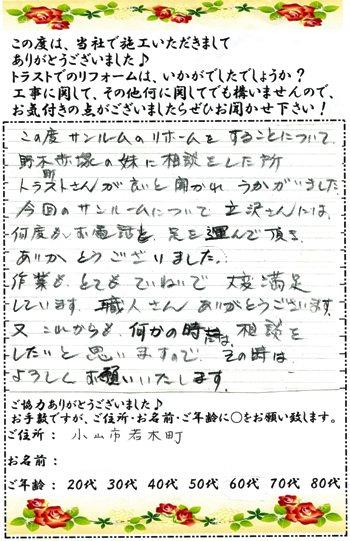 この度は、当社で施工いただきまして
ありがとうございました♪
トラストでのリフォームは、いかがでしたでしょうか？
工事に関して、その他何に関してでも構いませんので、
お気付きの点がございましたらぜひお聞かせ下さい！
この度 サンルームのリホームを することについて
野木 の妹に相談をした所
トラストさんが良いと聞かれ うかがいました。
今回のサンルームについて 立沢さんには、
何度も お電話を 足を運んで頂き
ありがとうございました。
作業も とても ていねいで 大変満足
しています。職人さん ありがとうございます。
又 これからも 何かの時は、相談を
したいと思いますので、その時は
よろしくお願いいたします。
ご協力ありがとうございました♪
お手数ですが、ご住所・お名前・ご年齢に○をお願い致します。
ご住所： 小山市若木町
お名前：
ご年齢： 20代 30代 40代 50代 60代 70代 80代